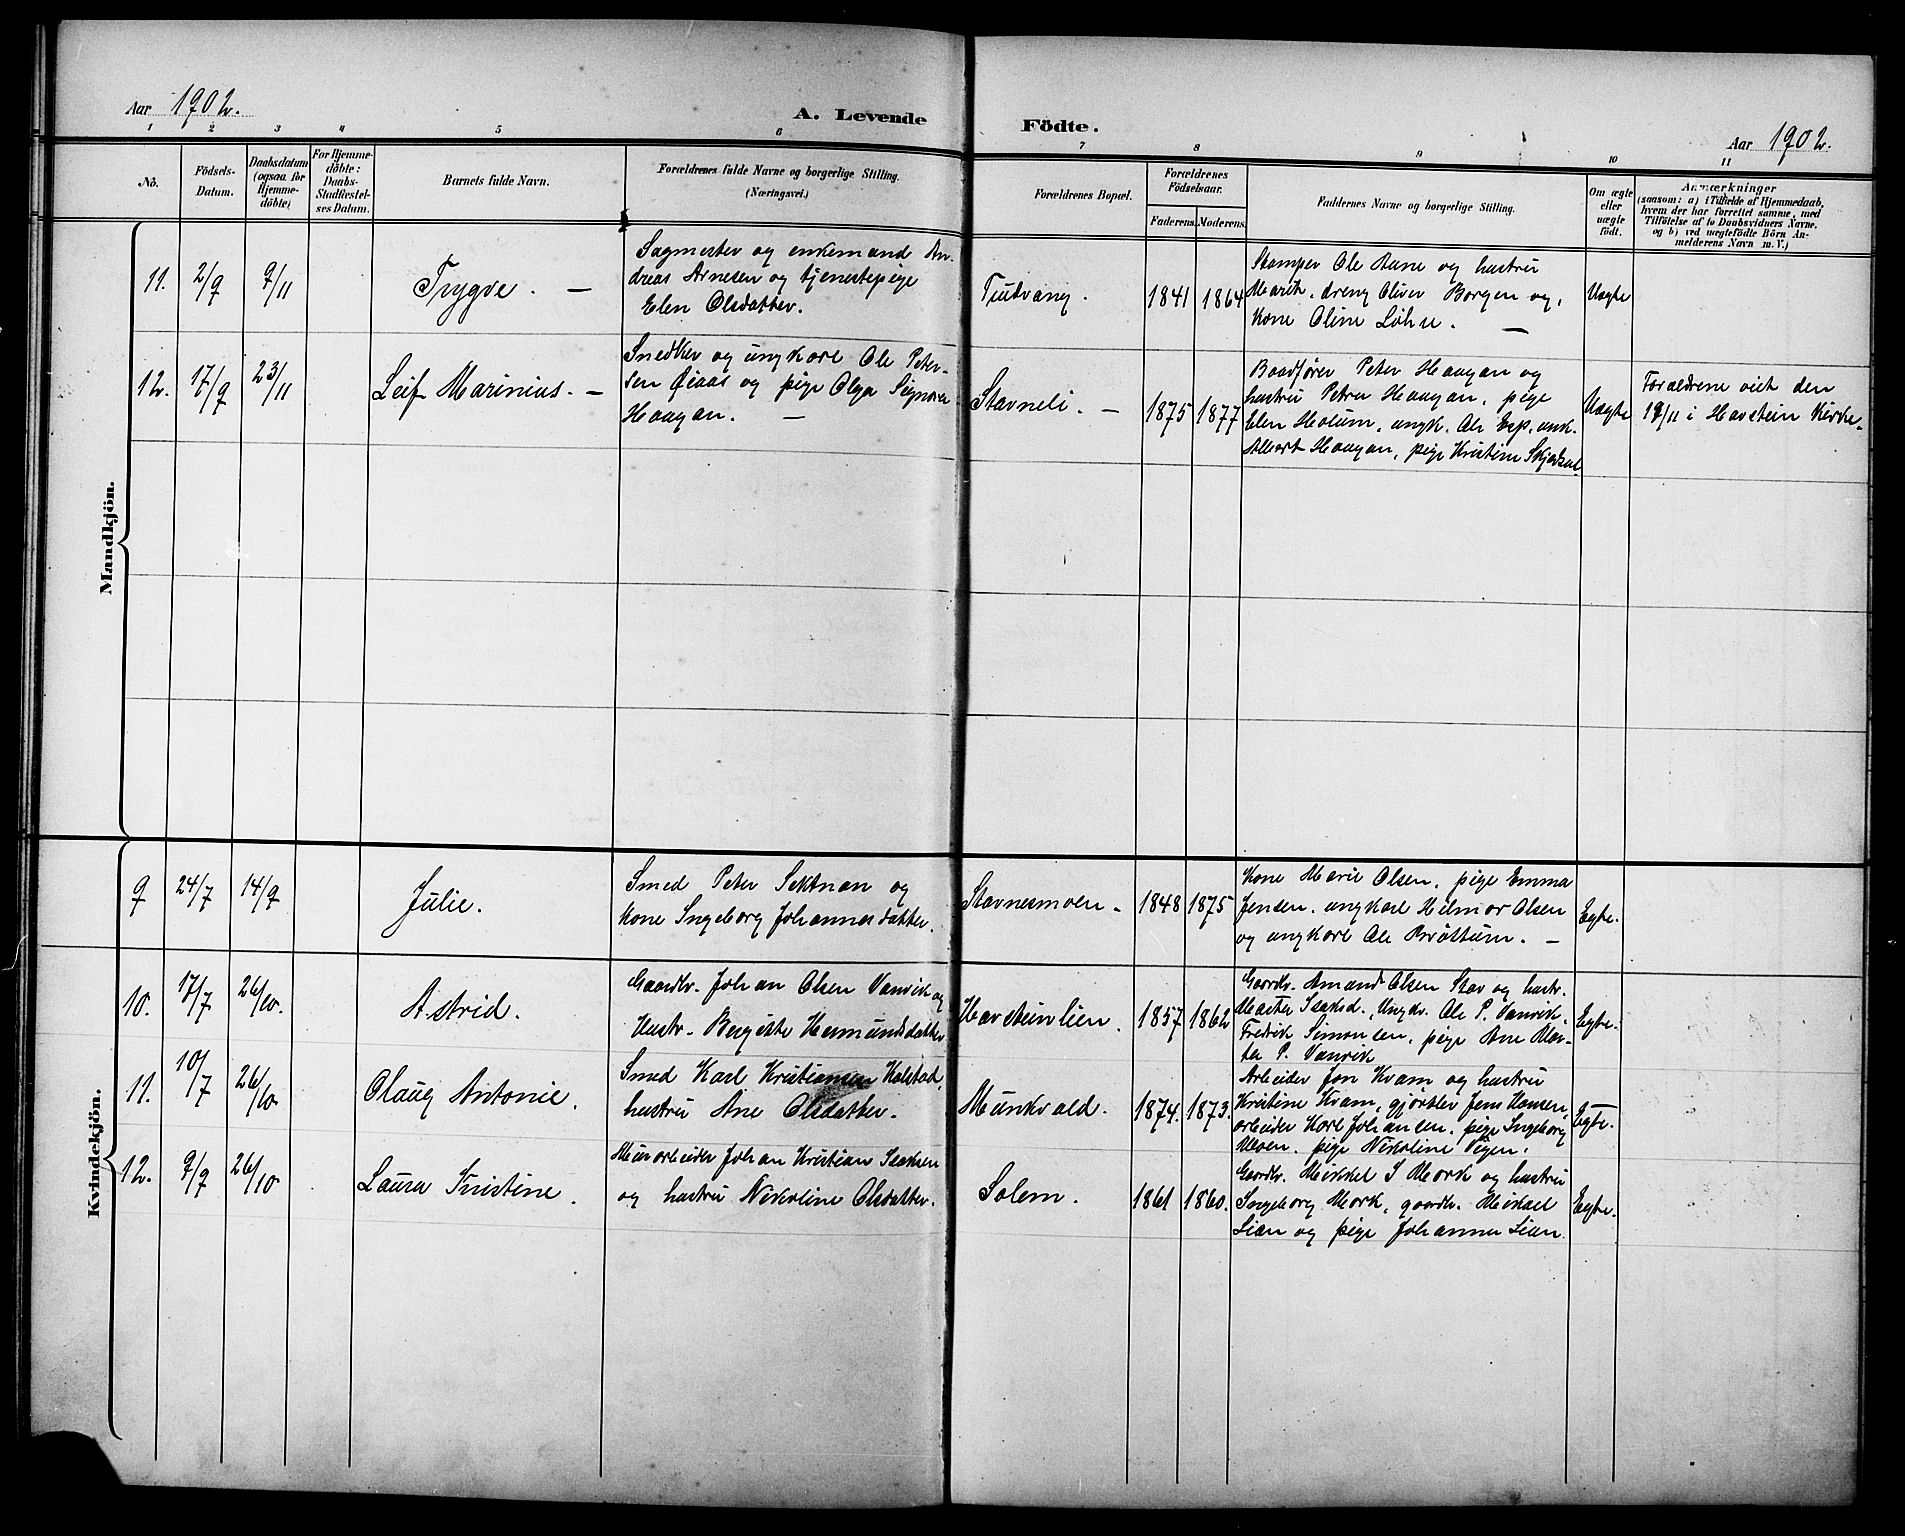 Aar 1902.
A. Levende
Födte.
Aar 1902.
1 2 3 4 5 6
7 8 9 10 11
No.
Födsels-
Datum.
Daabsdatum
(ogsaa for
Hjemme-
döbte)
For Hjemme-
döbte:
Daabs-
Stadfæstel-
ses Datum.
Barnets fulde Navn.
Forældrenes fulde Navne og borgerlige Stilling.
(Næringsvei.)
Forældrenes Bopæl.
Forældrenes
Födselsaar.
Faderens. Moderens.
Faddernes Navne og borgerlige Stilling.
Om ægte
eller
uægte
födt.
Anmærkninger
(saasom: a) i Tilfælde af Hjemmedaab,
hvem der har forrettet samme, med
Tilföielse af to Daabsvidners Navne.
og b) ved uægtefödte Börn An-
melderens Navn m. V.)
Mandkjön.
11. 2/9 9/11 Trygve. —
Sagmester og enkemand An-
dreas Arnesen og tjenestepige
Elen Olsdatter.
1841 1864
Stamper Ole Aune og hustru
Marit, dreng Oliver Borgen og,
Kone Oline Løhre. —
Uægte
12. 17/9 23/11 Leif Marinius. —
Snedker og ungkarl Ole Peter-
sen Øiaas og pige Olga
Haugan. —
Stavneli. — 1875 1877
Baadfører Peter Haugan og
hustru Petra Haugan, pige
Elen Holum, ungk. Ole Esp, unk.
Albert Haugan, pige Kristine
Uægte
Forældrene viet den
i Havstein Kirke.
Kvindekjön.
9 24/7 14/9 Julie.
Smed Peter Sektnan og
Kone Ingeborg Johannesdatter.
Stavnesmoen. 1848 1875
Kone Marie Olsen, pige Emma
Jensen, ungkarl Helmer Olsen
og ungkarl Ole Brøttum. —
Egte.
10. 17/7 26/10. Astrid.
Gaardbr. Johan Olsen Vanvik og
Hustr. Bergitte Hermundsdatter
Havsteinlien. 1857 1862
Gaardbr. Amund Olsen Stav og hustr.
Marta Isaksd., Ungkr. Ole P. Vanvik,
Fredrik Simonsen, pige Ane Mar-
ta P. Vanvik
Egte.
11. 10/7 26/10. Olaug Antonie.
Smed Karl Kristiansen Kolstad,
hustru Ane Olsdatter.
Munkvold. 1874. 1873.
Arbeider Jon Kvam og hustru
Kristine Kvam, gjørtler Jens Hansen,
arbeider Karl Johansen, pige Ingeborg
Moen, pige Nikoline Vigen.
Egte.
12. 9/9 26/10 Laura Kristine.
Murarbeider Johan Kristian Isaksen
og hustru Nikoline Olsdatter.
Solem. 1861 1860.
Gaardbr. Mikkel I Mork og hustru
Ingeborg Mork, gaardbr. Mikael
Lian og pige Johanna Lian.
Egte.